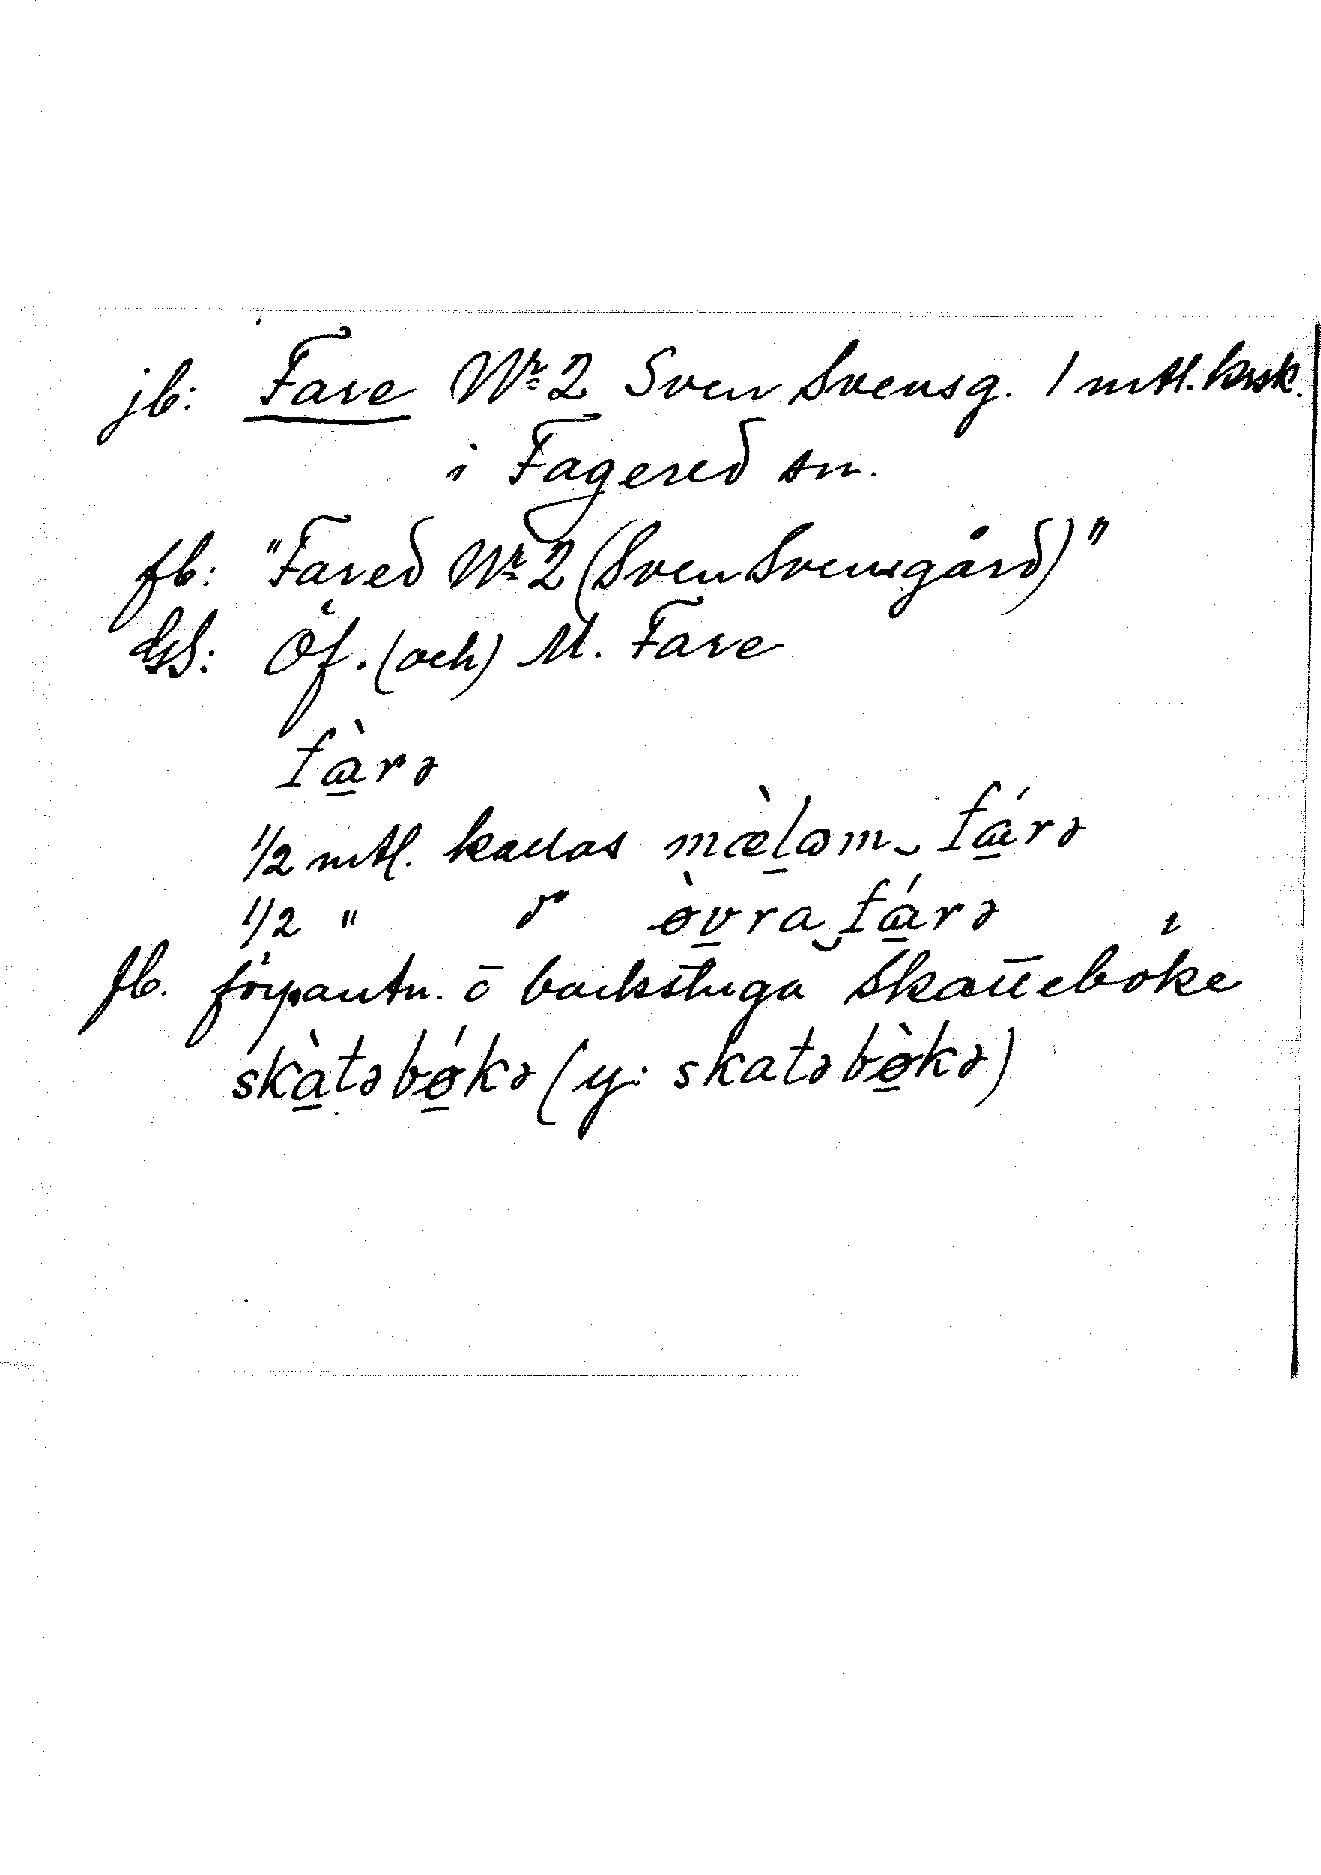 jb: Fare Nr 2 Sven Svensg. 1 mtl. krsk.
i Fagered sn.
fb: "Fared Nr 2 (Sven Svensgård)"
GS: Öf. (och) M. Fare
fàrə
1/2 mtl. kallas mæ̀lam‿fárə
1/2 " d:o ø̀vra‿fárə
fb. förpantn. o backstuga Skatteböke
skàtəbǿkə (y: skatəbø̀kə)